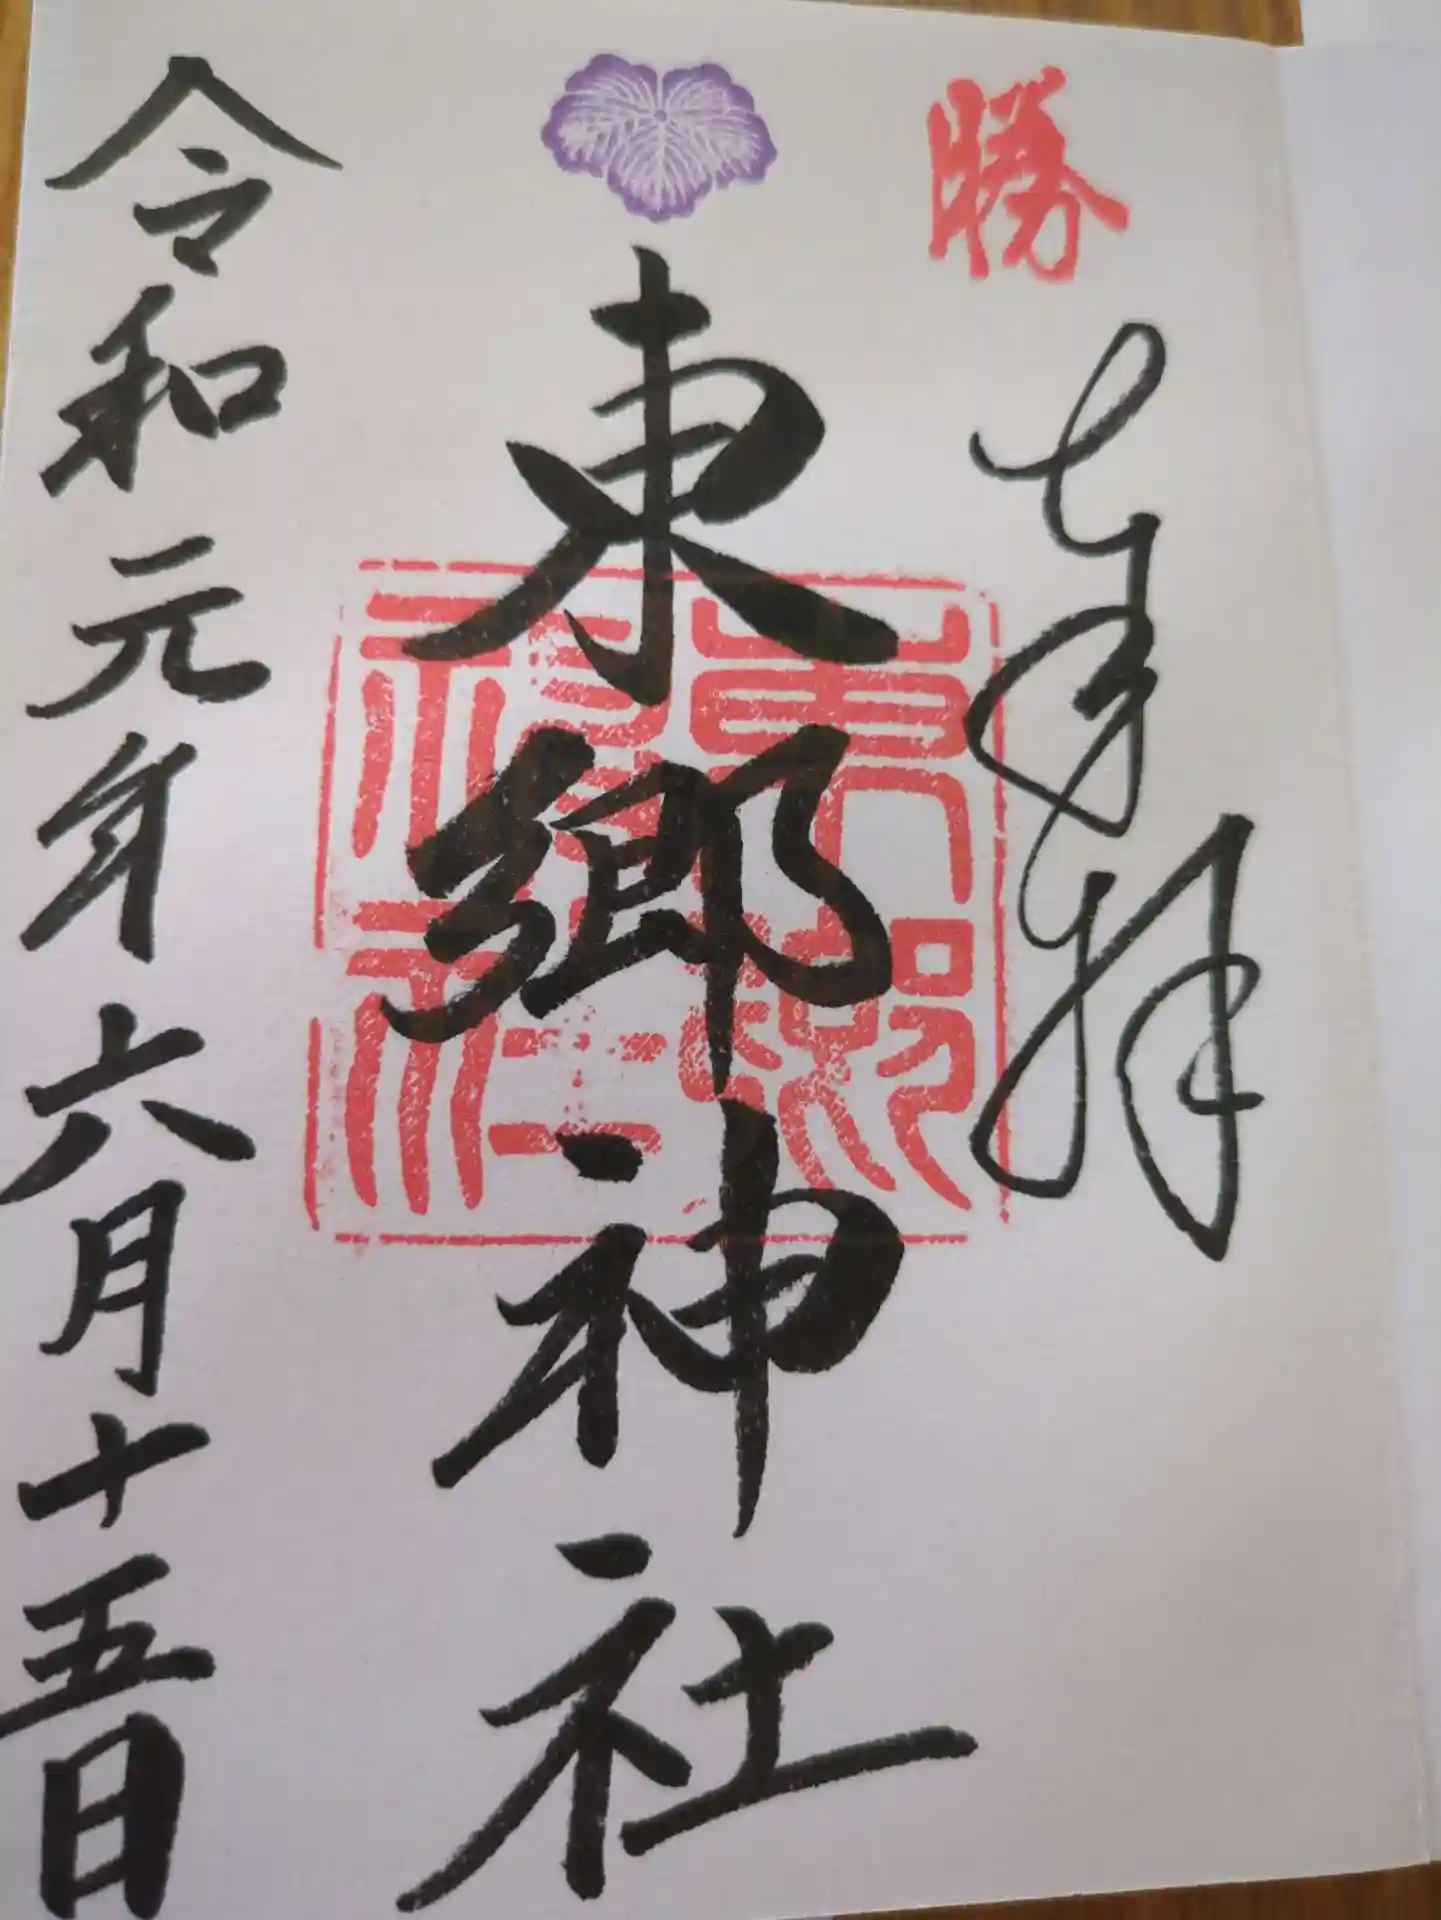 勝
奉拝
東郷神社
東郷神社
令和元年六月十五日